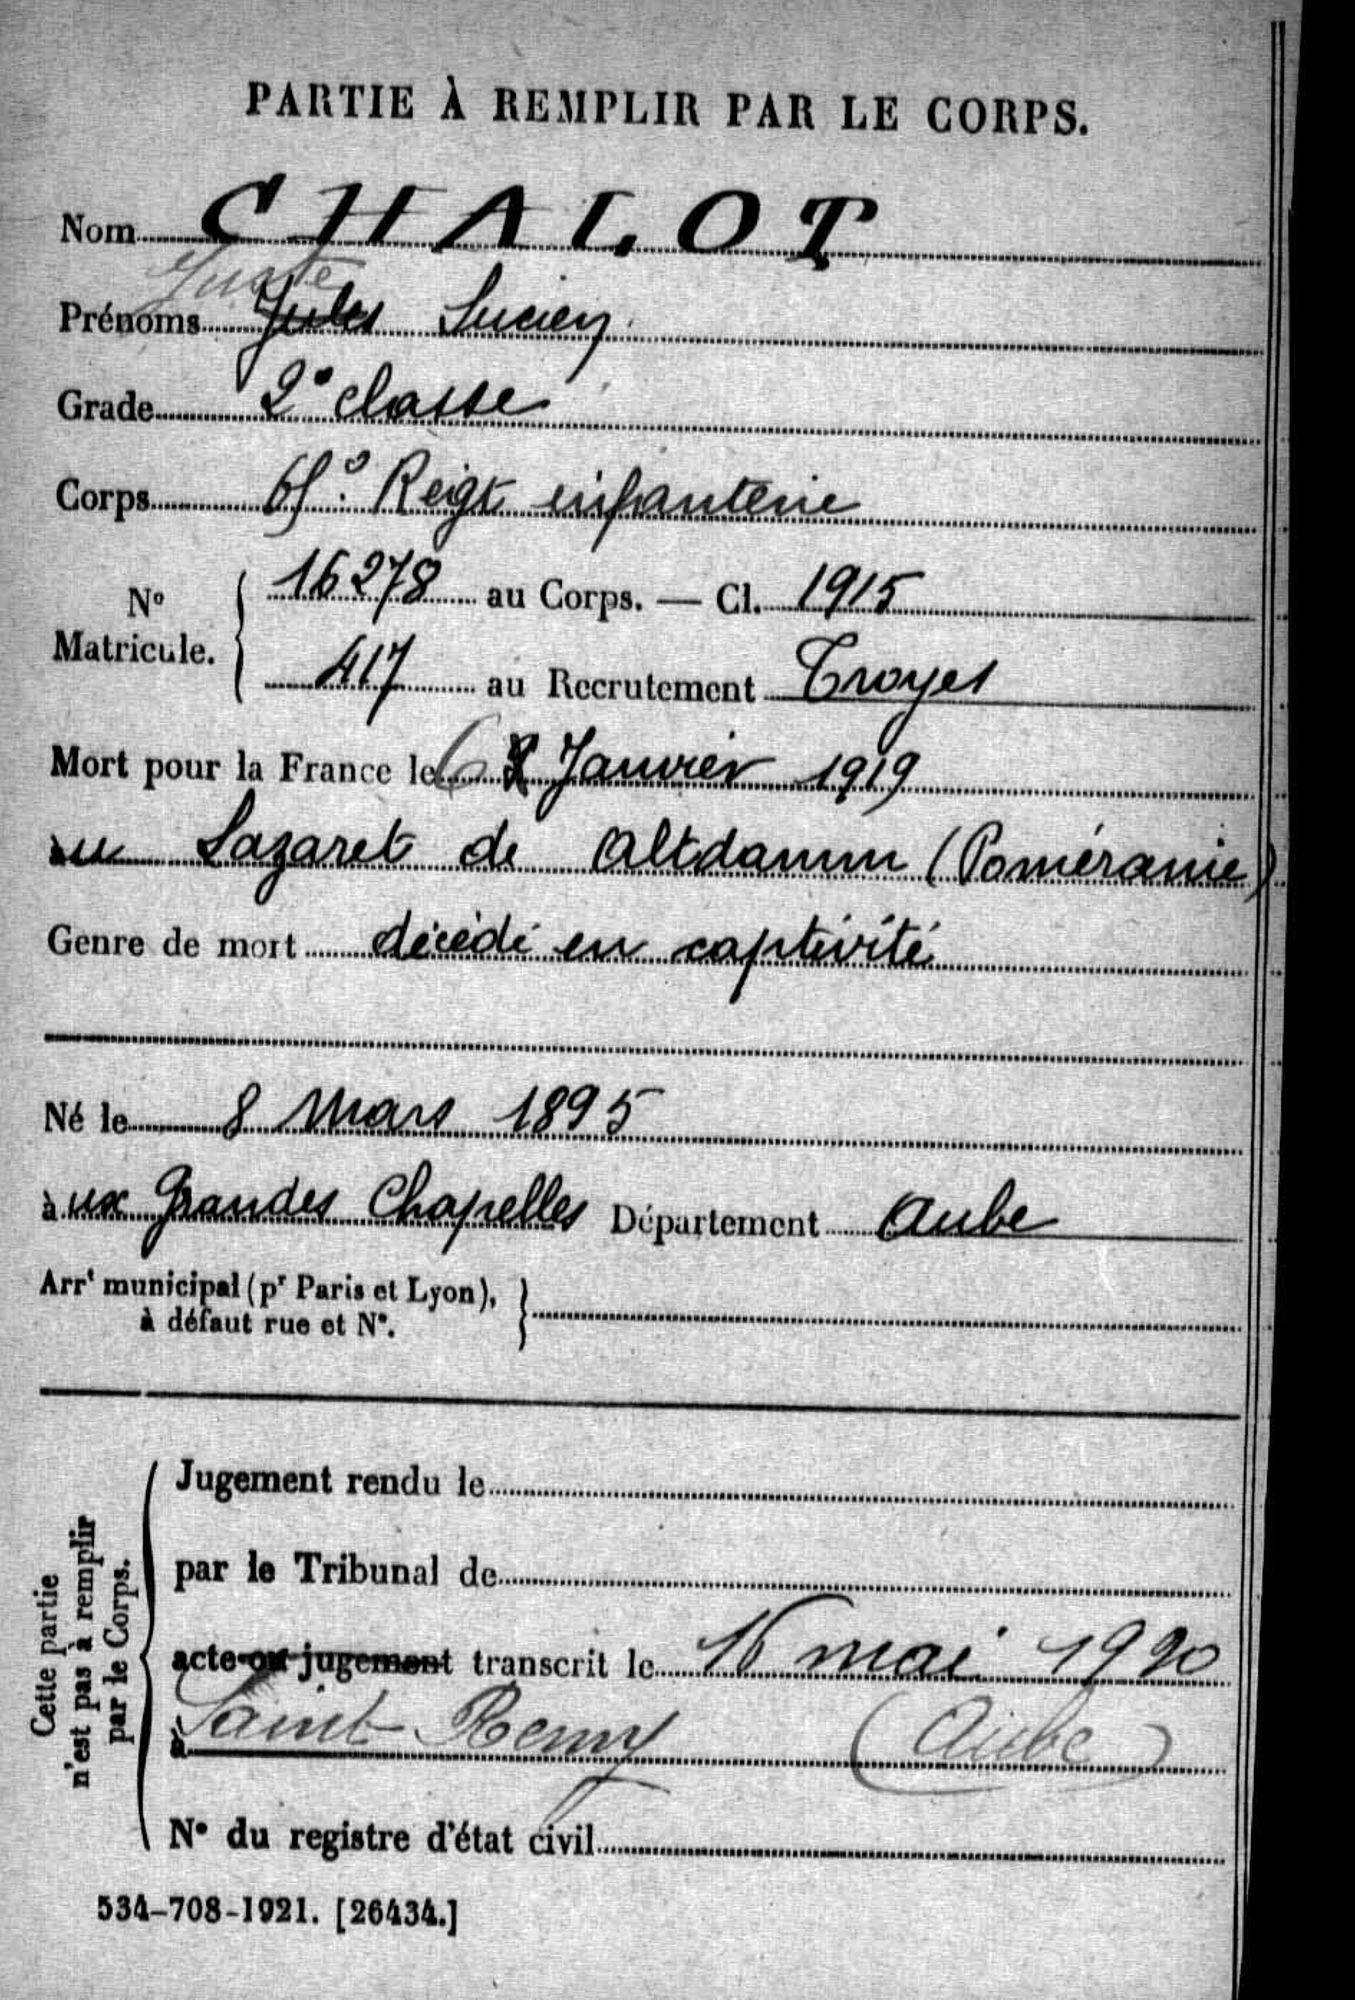 PARTIE À REMPLIR PAR LE CORPS.
Nom CHALOT
Juste
Prénoms Jules Lucien
Grade 2e classe
Corps Reigt infanterie
No Matricule. 16278 au Corps. — Cl. 1915
417 au Recrutement Troyes
Mort pour la France le 6 Janvier 1919
au Lazaret de Altdamm (Poméranie)
Genre de mort décédé en captivité
Né le 8 Mars 1895
aux Grandes Chapelles Département Aube
Arrt municipal (pr Paris et Lyon),
à défaut rue et N°.
Cette partie
n'est pas à remplir
par le Corps.
Jugement rendu le
par le Tribunal de
acte ou jugement transcrit le 16 mai 1920
à Saint Remy (Aube)
N° du registre d'état civil
534-708-1921. [26434.]